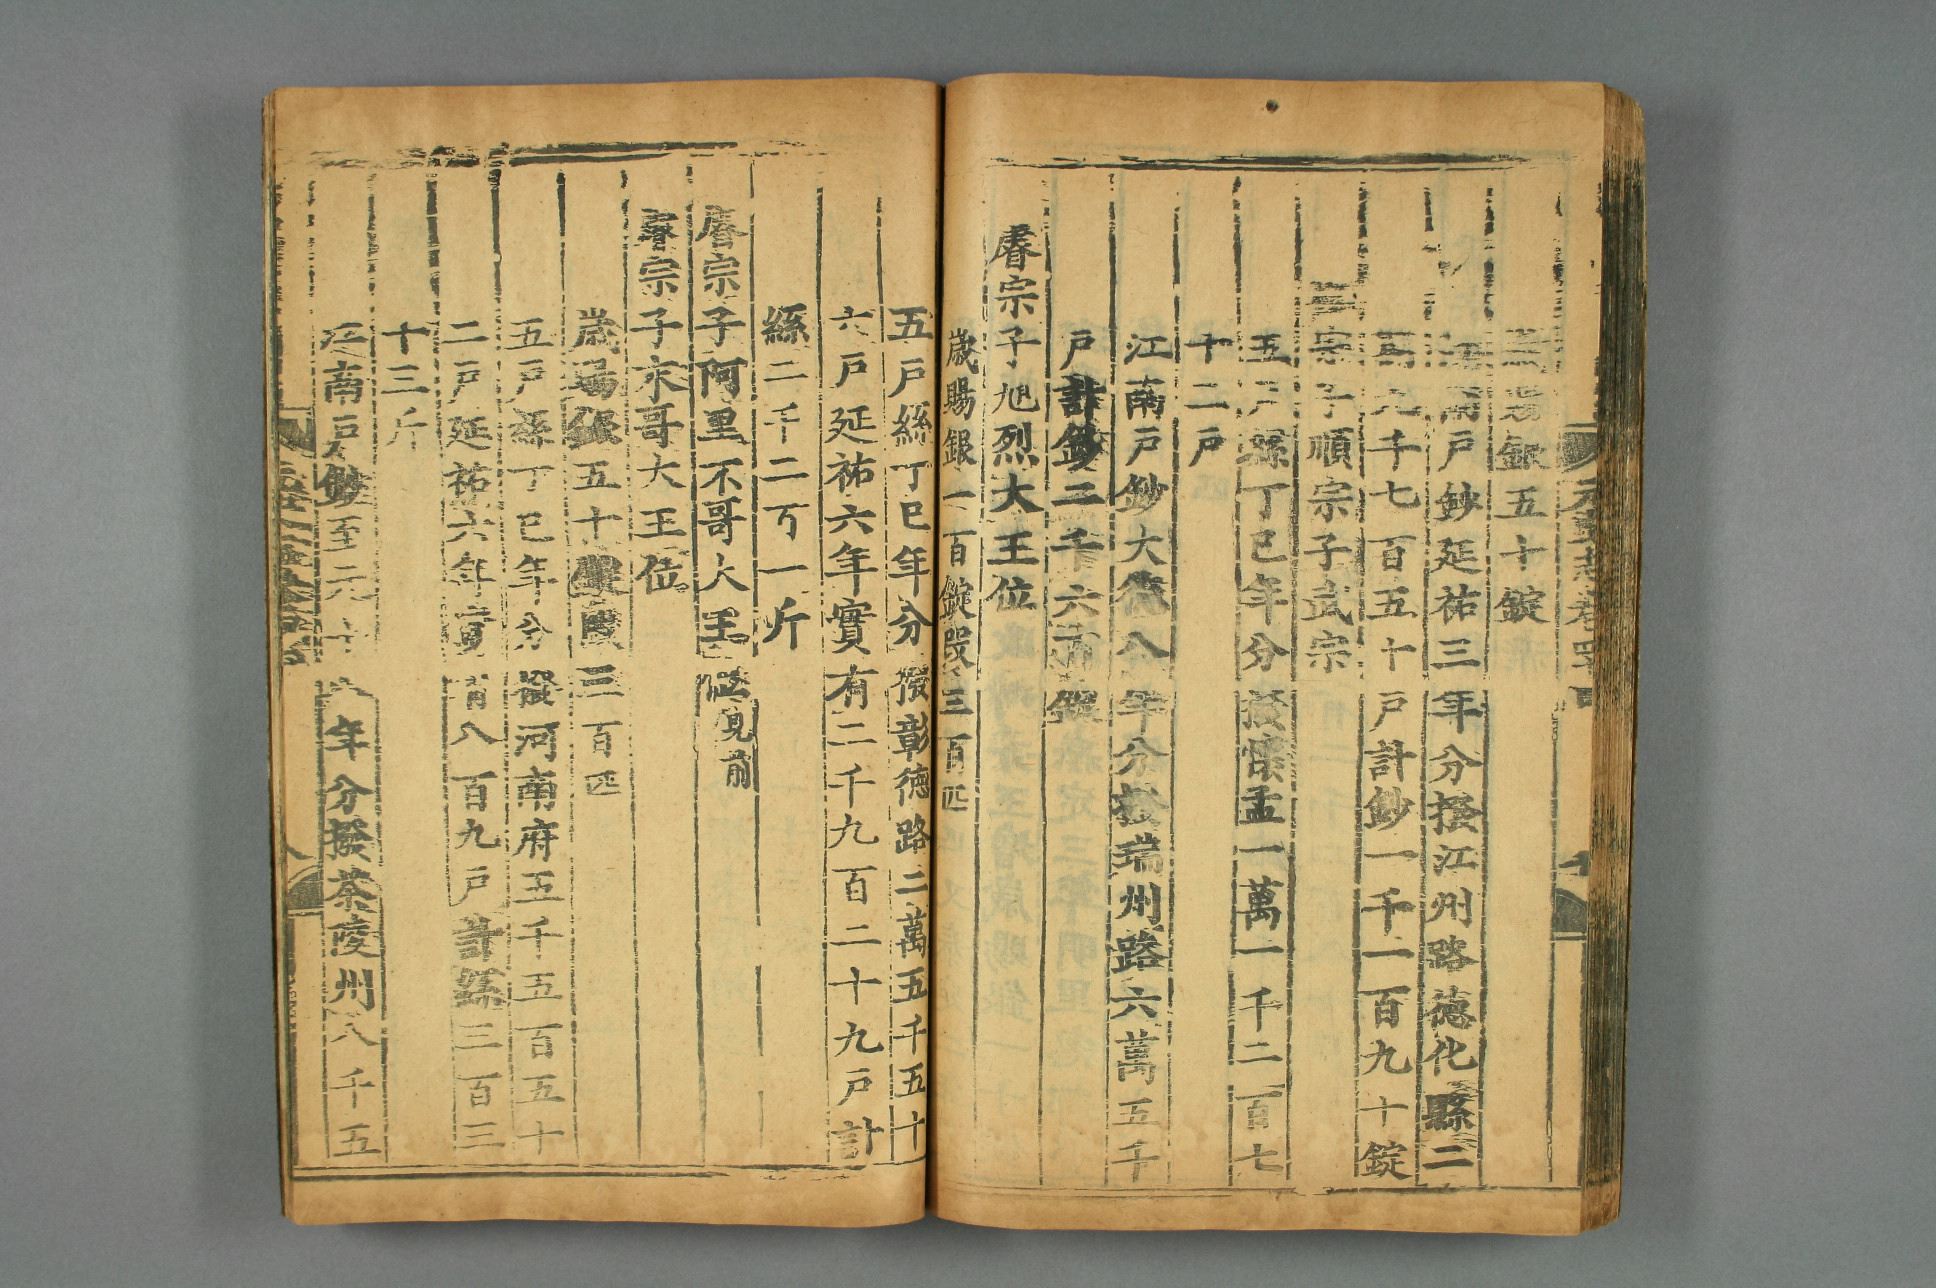 歳賜銀五十錠
江南戶鈔延祐三年分撥江州路德化縣二
萬九千七百五十戶計鈔一千一百九十錠
宗子順宗子武宗
五戶絲丁巳年分撥懷孟一萬一千二百七
十二戶
江南戶鈔大德八年分撥瑞州路六萬五千
戶計鈔二千六百錠
睿宗子旭烈大王位
歳賜銀一百錠叚三百匹
五戶絲丁巳年分撥彰德路二萬五千五十
六戶延祐六年實有二千九百二十九戶計
絲二千二百一斤
睿宗子阿里不哥大王位見前
睿宗子末哥大王位
歳賜銀五十錠叚三百匹
五戶絲丁巳年分撥河南府五千五百五十
二戶延祐六年實有八百九戶計絲三百三
十三斤
江南戶鈔至元十八年分撥茶陵州八千五